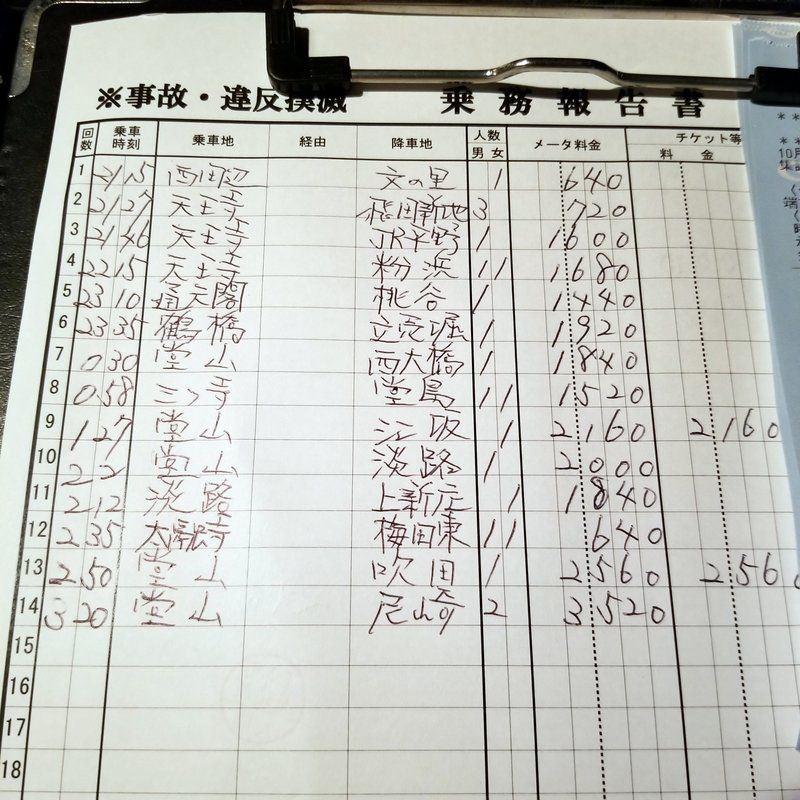 ※事故・違反撲滅 乗務報告書
回数 乗車時刻 乗車地 経由 降車地 人数 男 女 メータ料金 チケット等 料金
1 21 15 西田辺 文の里 1 640
2 21 27 天王寺 飛田新地 3 720
3 21 46 天王寺 JR平野 1 1600
4 22 15 天王寺 粉浜 1 1 1680
5 23 10 通天閣 桃谷 1 1440
6 23 35 鶴橋 立売堀 1 1920
7 0 30 堂山 西大橋 1 1840
8 0 58 三ツ寺 堂島 1 1 1520
9 1 27 堂山 江坂 1 2160 2160
10 2 2 堂山 淡路 1 2000
11 2 12 淡路 上新庄 1 1840
12 2 35 太融寺 梅田東 1 1 640
13 2 50 堂山 吹田 1 2560 256
14 3 20 堂山 尼崎 2 3520
15
16
17
18
* *
10月